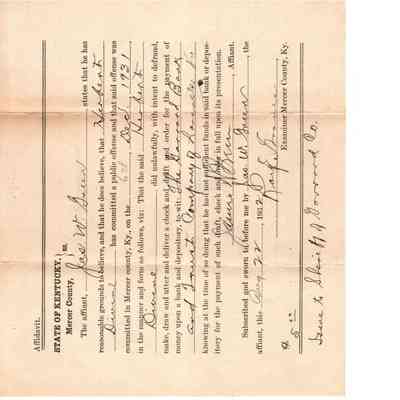 Affidavit.
STATE OF KENTUCKY,
Mercer County, } ss.
The affiant, Jas W Green states that he has
reasonable grounds to believe, and that he does believe, that Herbert
Divine has committed a public offense and that said offense was
committed in Mercer county, Ky., on the 6th Dec, 1931
in the manner and form as follows, viz: That the said Herbert
Divine did unlawfully, with intent to defraud,
make, draw and utter and deliver a check and draft and order for the payment of
money upon a bank and depository, to-wit: The Bank
and Trust Company of
knowing at the time of so doing that he has not sufficient funds in said bank or depos-
itory for the payment of such draft, check and order in full upon its presentation.
Green, Affiant.
Subscribed and sworn to before me by Jas W. Green, the
affiant, this 22 191
Examiner Mercer County, Ky.
Issue to Sheriff of Co.